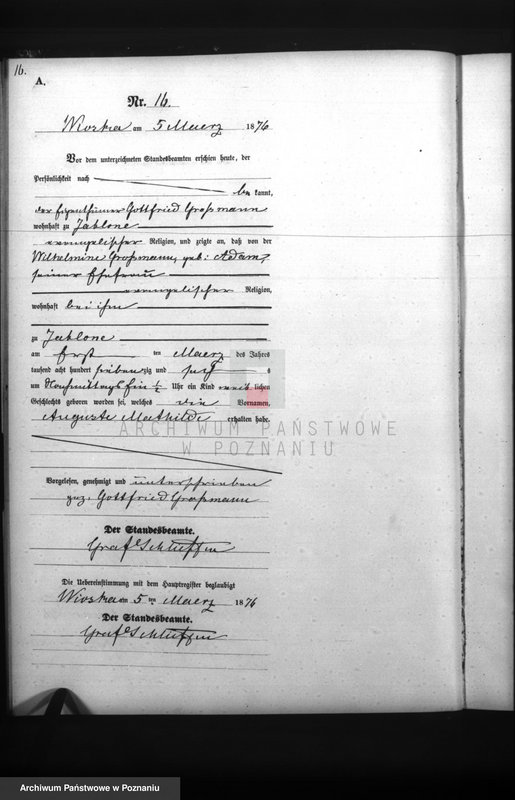 16.
A.
Nr. 16.
Wioska am 5 Maerz 1876
Vor dem unterzeichneten Standesbeamten erschien heute, der
Persönlichkeit nach
be kannt,
der Eigenthümer Gottfried Großmann
wohnhaft zu Jablone
evangelischer Religion, und zeigte an, daß von der
Wilhelmine Großmann, geb: Adam,
seiner Ehefrau
evangelischer Religion,
wohnhaft bei ihm
zu Jablone
am Erst ten Maerz des Jahres
tausend acht hundert sieben zig und sechs
um Nachmittags ½ Uhr ein Kind weib lichen
Geschlechts geboren worden sei, welches die Vornamen,
Auguste Mathilde erhalten habe.
ARCHIWUM PAŃSTWOWE
W POZNANIU
Vorgelesen, genehmigt und unterschrieben
gez. Gottfried Großmann
Der Standesbeamte.
Graf Schlieffen
Die Uebereinstimmung mit dem Hauptregister beglaubigt
Wioska am 5 ten Maerz 1876
Der Standesbeamte.
Graf Schlieffen
Archiwum Państwowe w Poznaniu